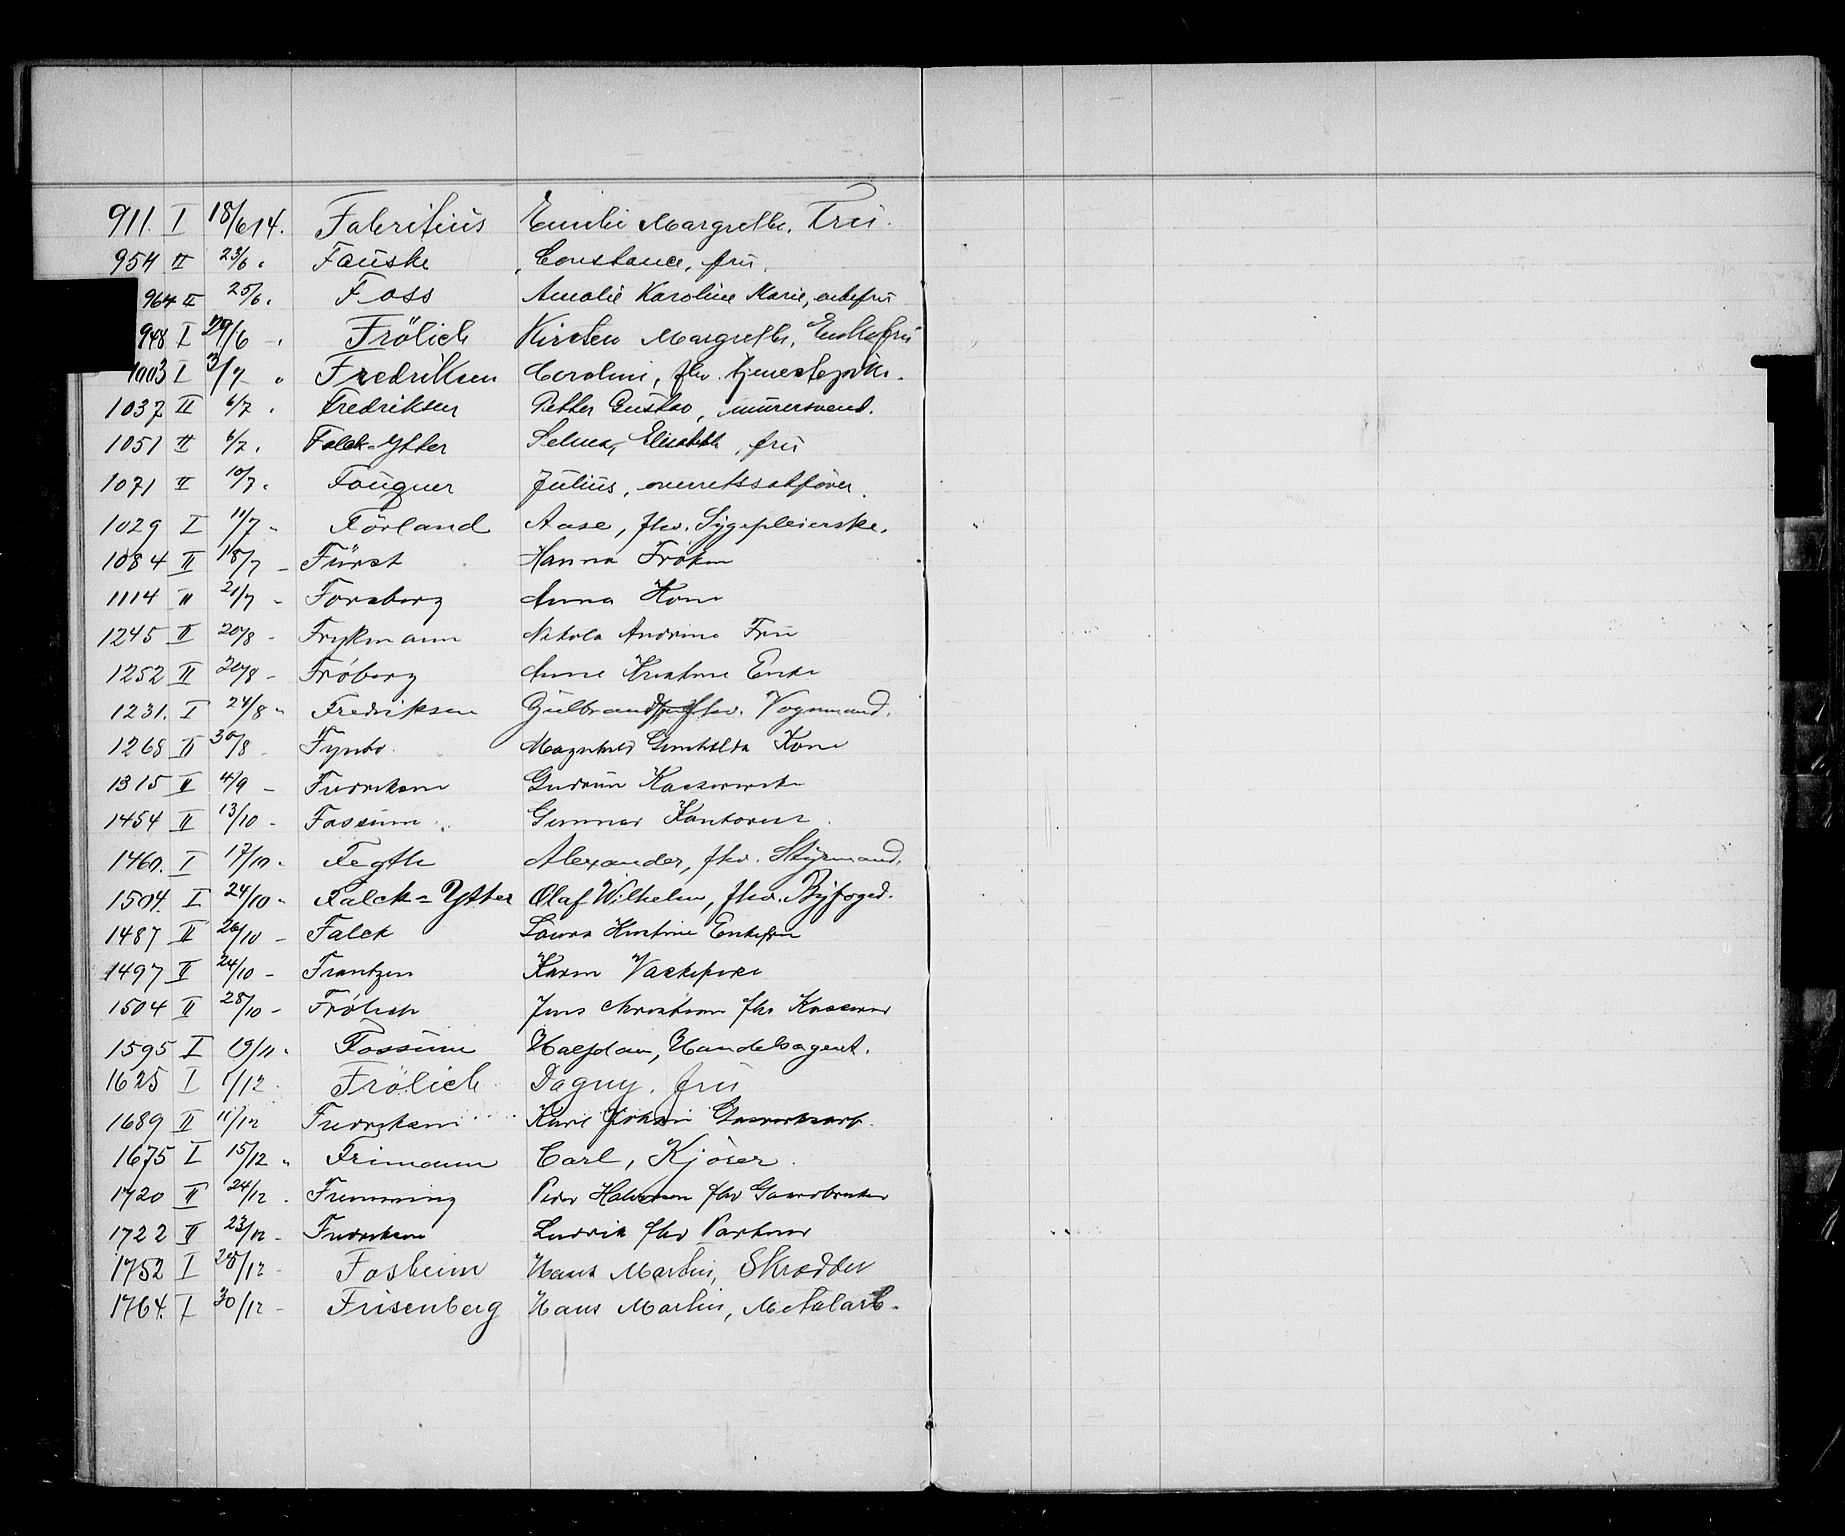 911. I 18/6 14. Fabritius Emilie Margrethe, Fru.
954 II 23/6 " Fauske Constance, fru.
964 II 25/6 " Foss Amalie Karoline Marie, enkefru
948 I 29/6 - " Frölich Kirsten Margrethe, Enkefru
1003 I 3/7 - " Fredriksen Caroline, fhv. tjenestepike.
1037 II 6/7 " Fredriksen Petter Gustav, murersvend.
1051 II 6/7 " Falck-Ytter Selma, Elisabeth, fru
1071 II 10/7 " Fougner Julius, overretssakfører.
1029 I 11/7 " Förland Aase, fhv. Sygepleierske.
1084 II 18/7 - Fürst Hanna Frøken
1114 II 21/7 - Forsberg Anna Kone
1245 II 20/8 - Frykmann Nikola Andrine Fru
1252 II 20/8 - Fröberg Anne Kristine Enke
1231. I 24/8 " Fredriksen Gulbrand fhv. Vognmand.
1268 II 30/8 - Fynbo Magnhild Gunhilda Kone
1315 II 4/9 - Fredriksen Gudrun Kassererske
1454 II 13/10 - Fossum Gunnar Kontorist
1460. I 17/10 " Fegth Alexander, fhv. Styrmand.
1504. I 24/10 " Falck=Ytter Olaf Wilhelm, fhv. Byfoged.
1487 II 26/10 - Falck Laura Kristine Enkefru
1497 II 24/10 - Frantzen Karen Vaskepike
1504 II 28/10 - Frölich Jens Christian fhv Kasserer
1595 I 19/11 " Fossum Halfdan, Handelsagent.
1625 I 1/12 Frölich Dagny, fru
1689 II 11/12 Fredriksen Karl Johan Gasverksarb.
1675 I 15/12 " Frimann Carl, Kjører.
1720 II 24/12 - Fremming Peder Halvorsen fhv Gaardbruker
1722 II 23/12 - Fredriksen Ludvik fhv Portner
1752 I 28/12 - Fosheim Hans Martin, Skrædder
1764. I 30/12 - Frisenberg Hans Martin, Metalarb.